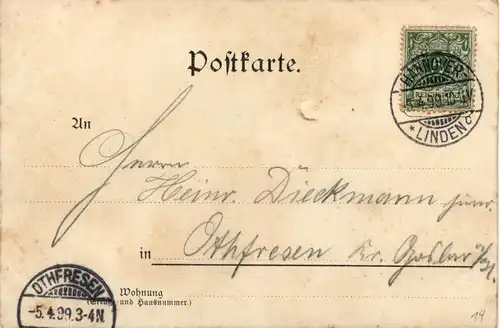 Postkarte.
HANNOVER
5. 4. 99. 10-4N.
* LINDEN
An
Herrn
Heinr. Dieckmann
in Othfresen Kr. Goslar
Wohnung
(Straße und Hausnummer.)
OTHFRESEN
-5. 4. 99. 3-4N.
19